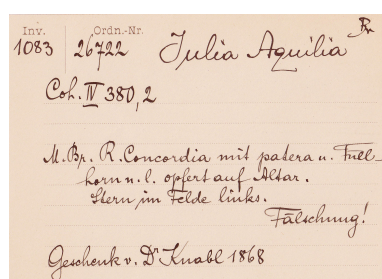 Inv. Ordn.-Nr.
1083 26722 Julia Aquilia
Coh. IV 380,2
M.Br. R. Concordia mit patera u. Füll-
horn n. l. opfert auf Altar.
Stern im Felde links.
Fälschung!
Geschenk v. Dr Knabl 1868